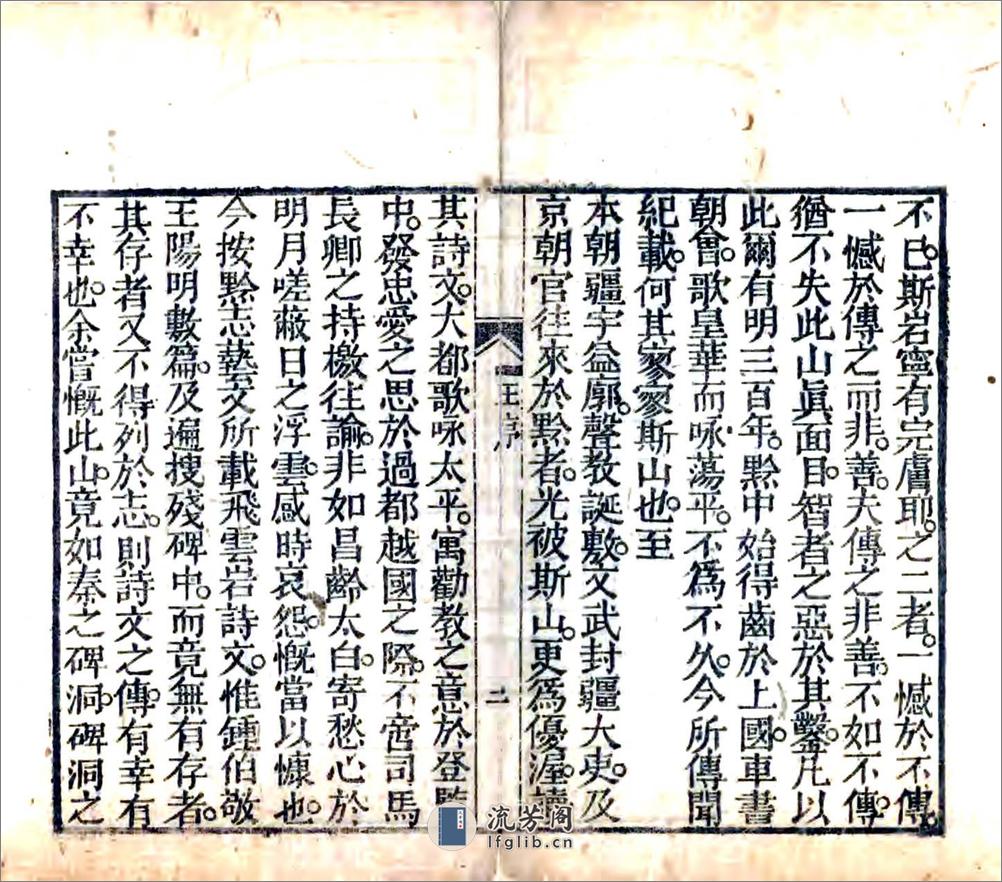 不已斯岩寧有完膚耶之二者一憾於不傳
一憾於傳之而非善夫傳之非善不如不傳
猶不失此山眞面目智者之惡於其鑿凡以
此爾有明三百年黔中始得齒於上國車書
朝會歌皇華而咏蕩平不爲不久今所傳聞
紀載何其寥寥斯山也至
本朝疆宇益廓聲教誕敷文武封疆大吏及
京朝官往來於黔者光被斯山更爲優渥讀
王序
二
其詩文大都歌咏太平寓勸教之意於登臨
中發忠愛之思於過都越國之際不啻司馬
長卿之持檄往諭非如昌齡太白寄愁心於
明月嗟蔽日之浮雲感時哀怨慨當以慷也
今按黔志藝文所載飛雲岩詩文惟鍾伯敬
王陽明數篇及遍搜殘碑中而竟無有存者
其存者又不得列於志則詩文之傳有幸有
不幸也余嘗慨此山竟如秦之碑洞碑洞之
流芳阁
lfglib.cn